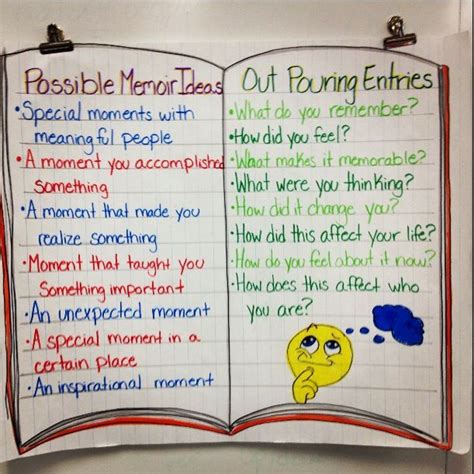 Possible Memoir Ideas
•Special moments with
meaningful people
•A moment you accomplished
something
•A moment that made you
realize something
•Moment that taught you
Something important
•An unexpected moment
•A special moment in a
certain place
•An inspirational moment
Out Pouring Entries
•What do you remember?
•How did you feel?
•What makes it memorable?
•What were you thinking?
•How did it change you?
•How did this affect your life?
•How do you feel about it now?
•How does this affect who
you are?